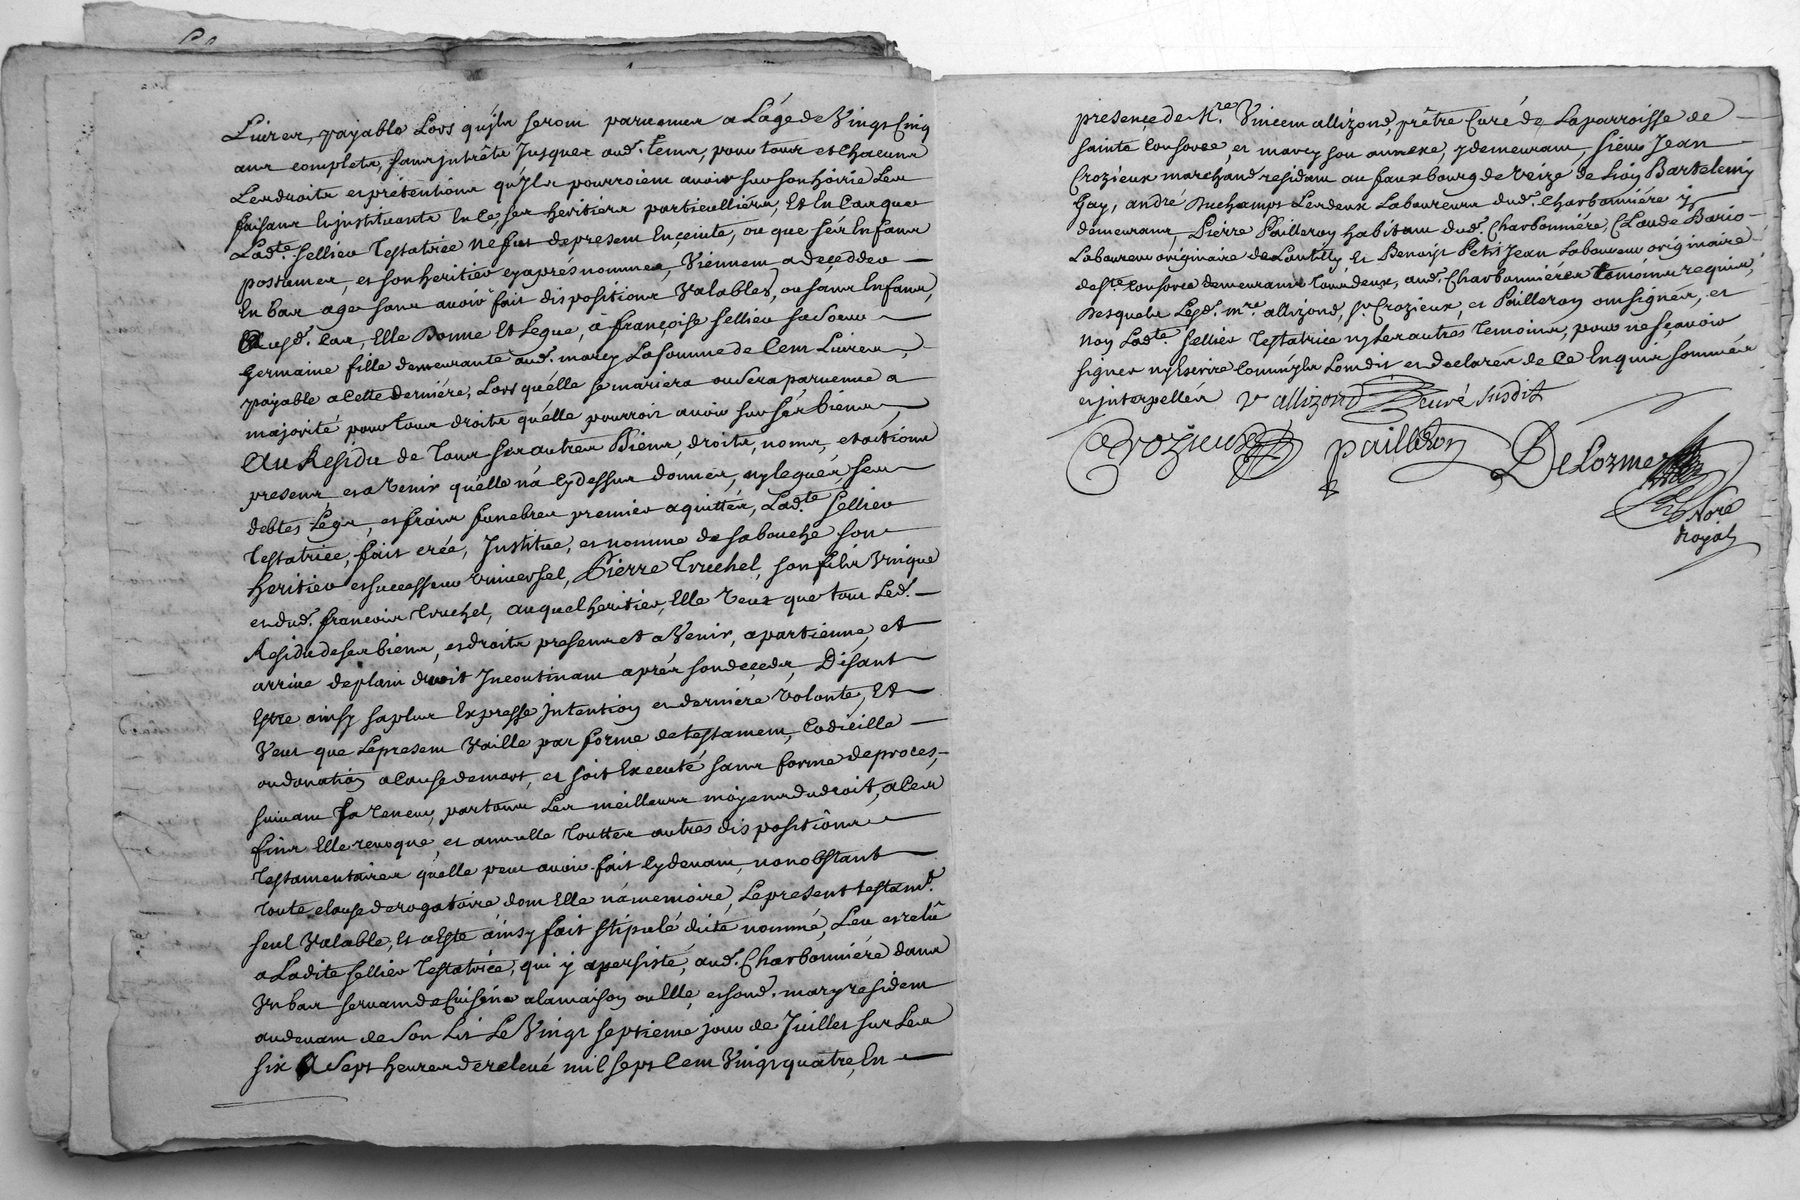 Livres, payable Lors qu'jls seront parvenus a L'âge de Vingt Cinq
ans complets, sans jntrêts Jusques aud. tems, pour tous et chacuns
Les droits et prétentions qu'jls pourroient avoir sur son hoirie Les
faisant Et jnstituants En Ce ses heritiers particulliers, Et En Cas que
Lad.te Sellier Testatrice ne fut de present Enceinte, ou que ses Enfans
postumes, et son heritier cy aprés nommes, Viennent a deçedder
En bas age sans avoir fait dispositions Valables, ou sans Enfans,
Aud. Cas, Elle Donne Et Legue, à françoise Sellier sa Soeur
Germaine fille demeurante aud. marcy La somme de Cent Livres,
payable a cette derniére, Lors qu'élle se mariera ou Sera parvenue a
majorité pour tous droits qu'élle pourroit avoir sur ses biens,
Au Residu de Tous ses autres Biens, droits, noms, et actions
presens et a Venir qu'élle n'a Cy dessus donnés, ny legués, ses
debtes Legs, et frais funebres premier aquittés, Lad.te Sellier
Testatrice, fait crée, Jnstitue, et nomme de sa bouche son
heritier et successeur Vniversel, Pierre Truchel, son fils Vnique
et dud. françois Truchel, auquel heritier, Elle Veut que tout Led.
Residu de ses biens, et droits presens et a Venir, apartienne, et
arrive de plain droit Jncontinant aprés son deçeds, Disant
Estre ainsy sa plus Expresse jntention et derniére Volonte, Et
Veut que Le present Vaille par forme de testament, Codicille
ou donation a Cause de mort, et soit Executé sans forme de proces,
suivant sa Teneur, par tous Les meilleurs moyens du droit, a Ces
fins Elle revoque, et annulle Touttes autres dispositions
Testamentaires qu'élle peut avoir fait Cy devant, nonobstant
toute clause derogatoire dont Elle n'a memoire, Le present testam.t
seul Valable, Et a Esté ainsy fait stipulé dicte nommé, Leu et relû
a Ladite Sellier Testatrice, qui y a persisté, aud. Charbonniére dans
Vn bas servant de Cuisine a la maison ou Elle, et sond. mary resident
au devant de Son Lit Le Vingt septieme jour de Juillet sur Les
six A Sept heures de relevé mil sept Cent Vingt quatre, En
presençe de M.re Vincent allizond, prêtre Curé de La parroisse de
sainte Consorce, et marcy son annexe, y demeurant, sieur Jean
Crozieux marchand residant au fauxbourg de Veize de Lion Bartelemy
Gay, andré Duchamps Les deux Laboureurs dud. Charbonniére y
demeurans, Pierre Pailleron habitant dud. Charbonniére, Claude Bario
Laboureur originaire de Lentilly Et Benoist Petit Jean Laboureur originaire
de S.te Consorce demeurants tous deux, aud. Charbonniéres temoins requis,
Desquels Lesd. m.re allizond, s.r Crozieux, et Pailleron ont signés, et
non Lad.te Sellier Testatrice ny Les autres Temoins, pour ne sçavoir
signer ny Escrire Comm'jls L'ont dit et declarer de Ce Enquis sommés
et jnterpellés V allizond curé susdit
Crozieux pailleron Delorme
No.re
Royal